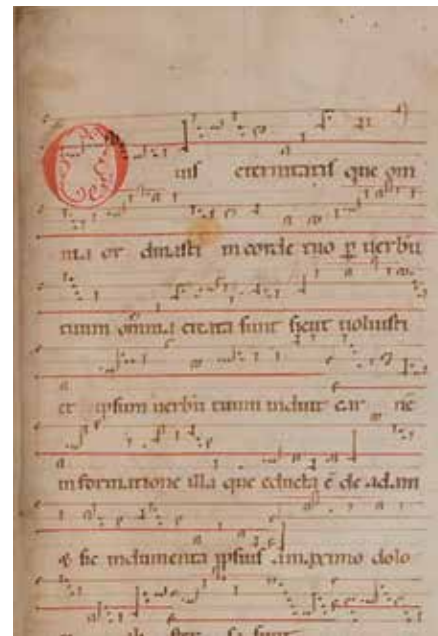 O uis eternitatis que om
nia or dinasti in corde tuo p̱ uerbū
tuum omnia creata sunt sicut uoluisti
et ipsum uerbū tuum induit car nē
in formatione illa que educta ē de adam
& sic indumenta ipsius a maximo dolo